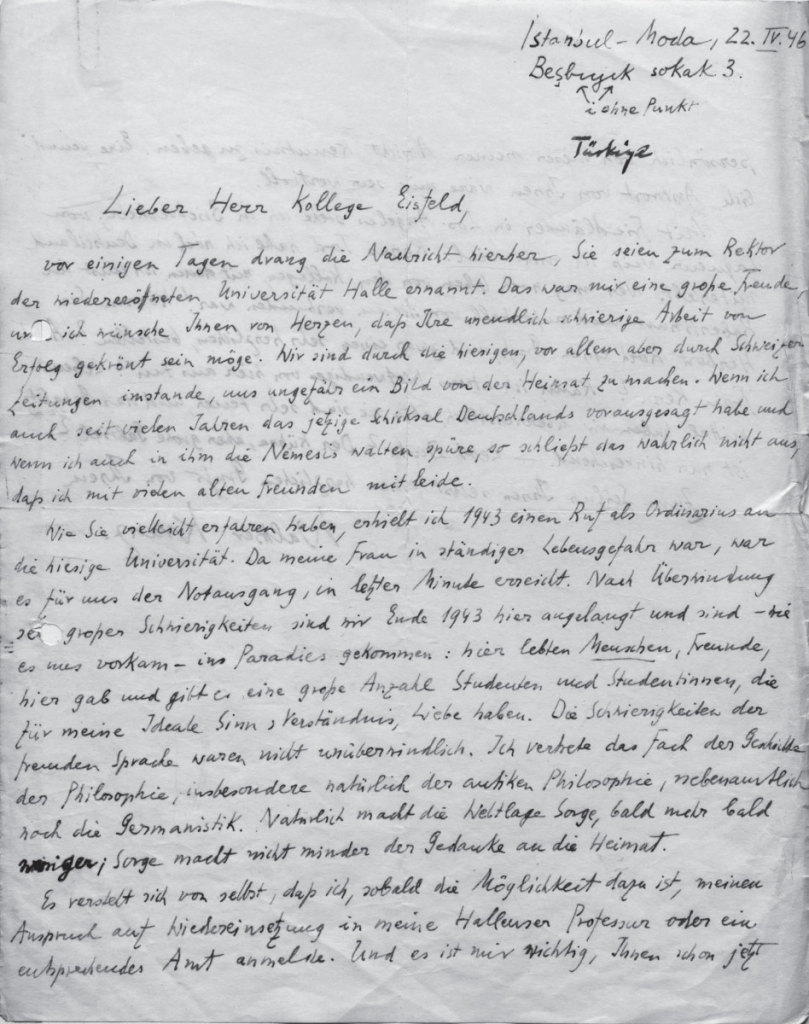 Istanbul – Moda, 22. IV. 46
Beşbıyık sokak 3.
i ohne Punkt
Türkiye
Lieber Herr Kollege Eisfeld,
vor einigen Tagen drang die Nachricht hierher, Sie seien zum Rektor
der wiedereröfneten Universität Halle ernannt. Das war mir eine große Freude,
und ich wünsche Ihnen von Herzen, daß Ihre unendlich schwierige Arbeit von
Erfolg gekrönt sein möge. Wir sind durch die hiesigen, vor allem aber durch Schweizer
Zeitungen imstande, uns ungefähr ein Bild von der Heimat zu machen. Wenn ich
auch seit vielen Jahren das jetzige Schicksal Deutschlands vorausgesagt habe und
wenn ich auch in ihm die Nemesis walten spüre, so schließt das wahrlich nicht aus,
daß ich mit vielen alten Freunden mit leide.
Wie Sie vielleicht erfahren haben, erhielt ich 1943 einen Ruf als Ordinarius an
die hiesige Universität. Da meine Frau in ständiger Lebensgefahr war, war
es für uns der Notausgang, in letzter Minute erreicht. Nach Überwindung
großer Schwierigkeiten sind wir Ende 1943 hier angelangt und sind – wie
es uns vorkam – ins Paradies gekommen: hier lebten Menschen, Freunde,
hier gab und gibt es eine große Anzahl Studenten und Studentinnen, die
für meine Ideale Sinn, Verständnis, Liebe haben. Die Schwierigkeiten der
fremden Sprache waren nicht unüberwindlich. Ich vertrete das Fach der Geschichte
der Philosophie, insbesondere natürlich der antiken Philosophie, nebenamtlich
noch die Germanistik. Natürlich macht die Weltlage Sorge, bald mehr bald
weniger; Sorge macht nicht minder der Gedanke an die Heimat.
Es versteht sich von selbst, daß ich, sobald die Möglichkeit dazu ist, meinen
Anspruch auf Wiedereinsetzung in meine Hallenser Professur oder ein
entsprechendes Amt anmelde. Und es ist mir wichtig, Ihnen schon jetzt